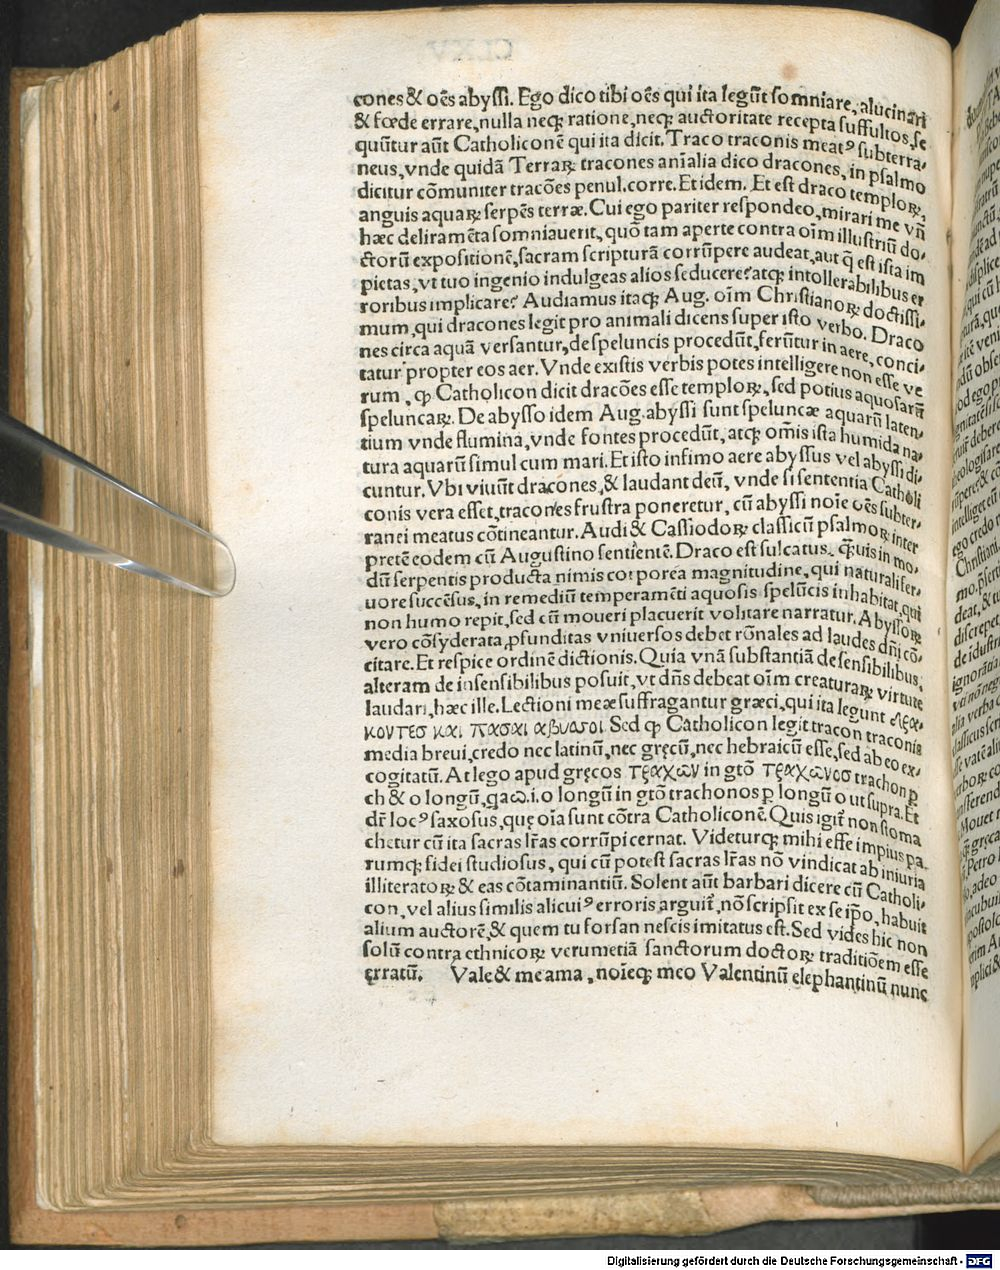 cones & oēs abyssi. Ego dico tibi oēs qui ita legūt somniare, alucinari
& fœde errare, nulla neqꝫ ratione, neqꝫ auctoritate recepta suffultos, se
quūtur aūt Catholiconē qui ita dicit. Traco traconis meatꝰ subterra⸗
neus, vnde quidā Terraꝝ tracones anīalia dico dracones, in psalmo
dicitur cōmuniter tracōes penul. corre. Et idem. Et est draco temploꝝ,
anguis aquaꝝ serpēs terræ. Cui ego pariter respondeo, mirari me vñ
hæc deliramēta somniauerit, quō tam aperte contra oīm illustriū do⸗
ctorū expositionē, sacram scripturā corrūpere audeat, aut q̄ est ista im
pietas, vt tuo ingenio indulgeas alios seducere? atqꝫ intollerabilibus er
roribus implicare? Audiamus itaqꝫ Aug. oīm Christianoꝝ doctissi⸗
mum, qui dracones legit pro animali dicens super isto verbo. Draco
nes circa aquā versantur, de speluncis procedūt, ferūtur in aere, conci⸗
tatur propter eos aer. Vnde ex istis verbis potes intelligere non esse ve
rum, ꝙ Catholicon dicit dracōes esse temploꝝ, sed potius aquosarū
speluncaꝝ. De abysso idem Aug. abyssi sunt speluncæ aquarū laten⸗
tium vnde flumina, vnde fontes procedūt, atqꝫ om̄is ista humida na⸗
tura aquarū simul cum mari. Et isto infimo aere abyssus vel abyssi di⸗
cuntur. Vbi viuūt dracones, & laudant deū, vnde si sententia Catholi
conis vera esset, tracones frustra poneretur, cū abyssi noīe oēs subter⸗
ranei meatus cōtineantur. Audi & Cassiodoꝝ classicū psalmoꝝ inter
pretē eodem cū Augustino sentientē. Draco est sulcatus. q̄uis in mo⸗
dū serpentis producta nimis corporea magnitudine, qui naturali fer⸗
uore succēsus, in remediū temperamēti aquosis spelūcis inhabitat, qui
non humo repit, sed cū moueri placuerit volitare narratur. Abyssoꝝ
vero cōsyderata ꝓfunditas vniuersos debet rōnales ad laudes dn̄i cō⸗
citare. Et respice ordinē dictionis. Quia vnā substantiā de sensibilibus,
alteram de insensibilibus posuit, vt dn̄s debeat oīm creaturaꝝ virtute
laudari, hæc ille. Lectioni meæ suffragantur græci, qui ita legunt Δρα⸗
κοντεσ και πασαι αβυσσοι Sed ꝙ Catholicon legit tracon traconis
media breui, credo nec latinū, nec gręcū, nec hebraicū esse, sed ab eo ex⸗
cogitatū. At lego apud gręcos τραχῶν in gtō τραχῶνοσ trachon ꝑ
ch & o longū, q̄a ω. i. o longū in gtō trachonos ꝑ longū o ut supra. Et
dr̄ locꝰ saxosus, quę oīa sunt cōtra Catholiconē. Quis igit̄ non stoma
chetur cū ita sacras lr̄as corrūpi cernat. Videturqꝫ mihi esse impius pa⸗
rumqꝫ fidei studiosus, qui cū potest sacras lr̄as nō vindicat ab iniuria
illiteratoꝝ & eas cōtaminantiū. Solent aūt barbari dicere cū Catholi⸗
con, vel alius similis alicuiꝰ erroris arguit̄, nō scripsit ex se ipō, habuit
alium auctorē, & quem tu forsan nescis imitatus est. Sed vides hic non
solū contra ethnicoꝝ verumetiā sanctorum doctoꝝ traditiōem esse
erratū. Vale & me ama, noīeqꝫ meo Valentinū elephantinū nunc
Digitalisierung gefördert durch die Deutsche Forschungsgemeinschaft - DFG